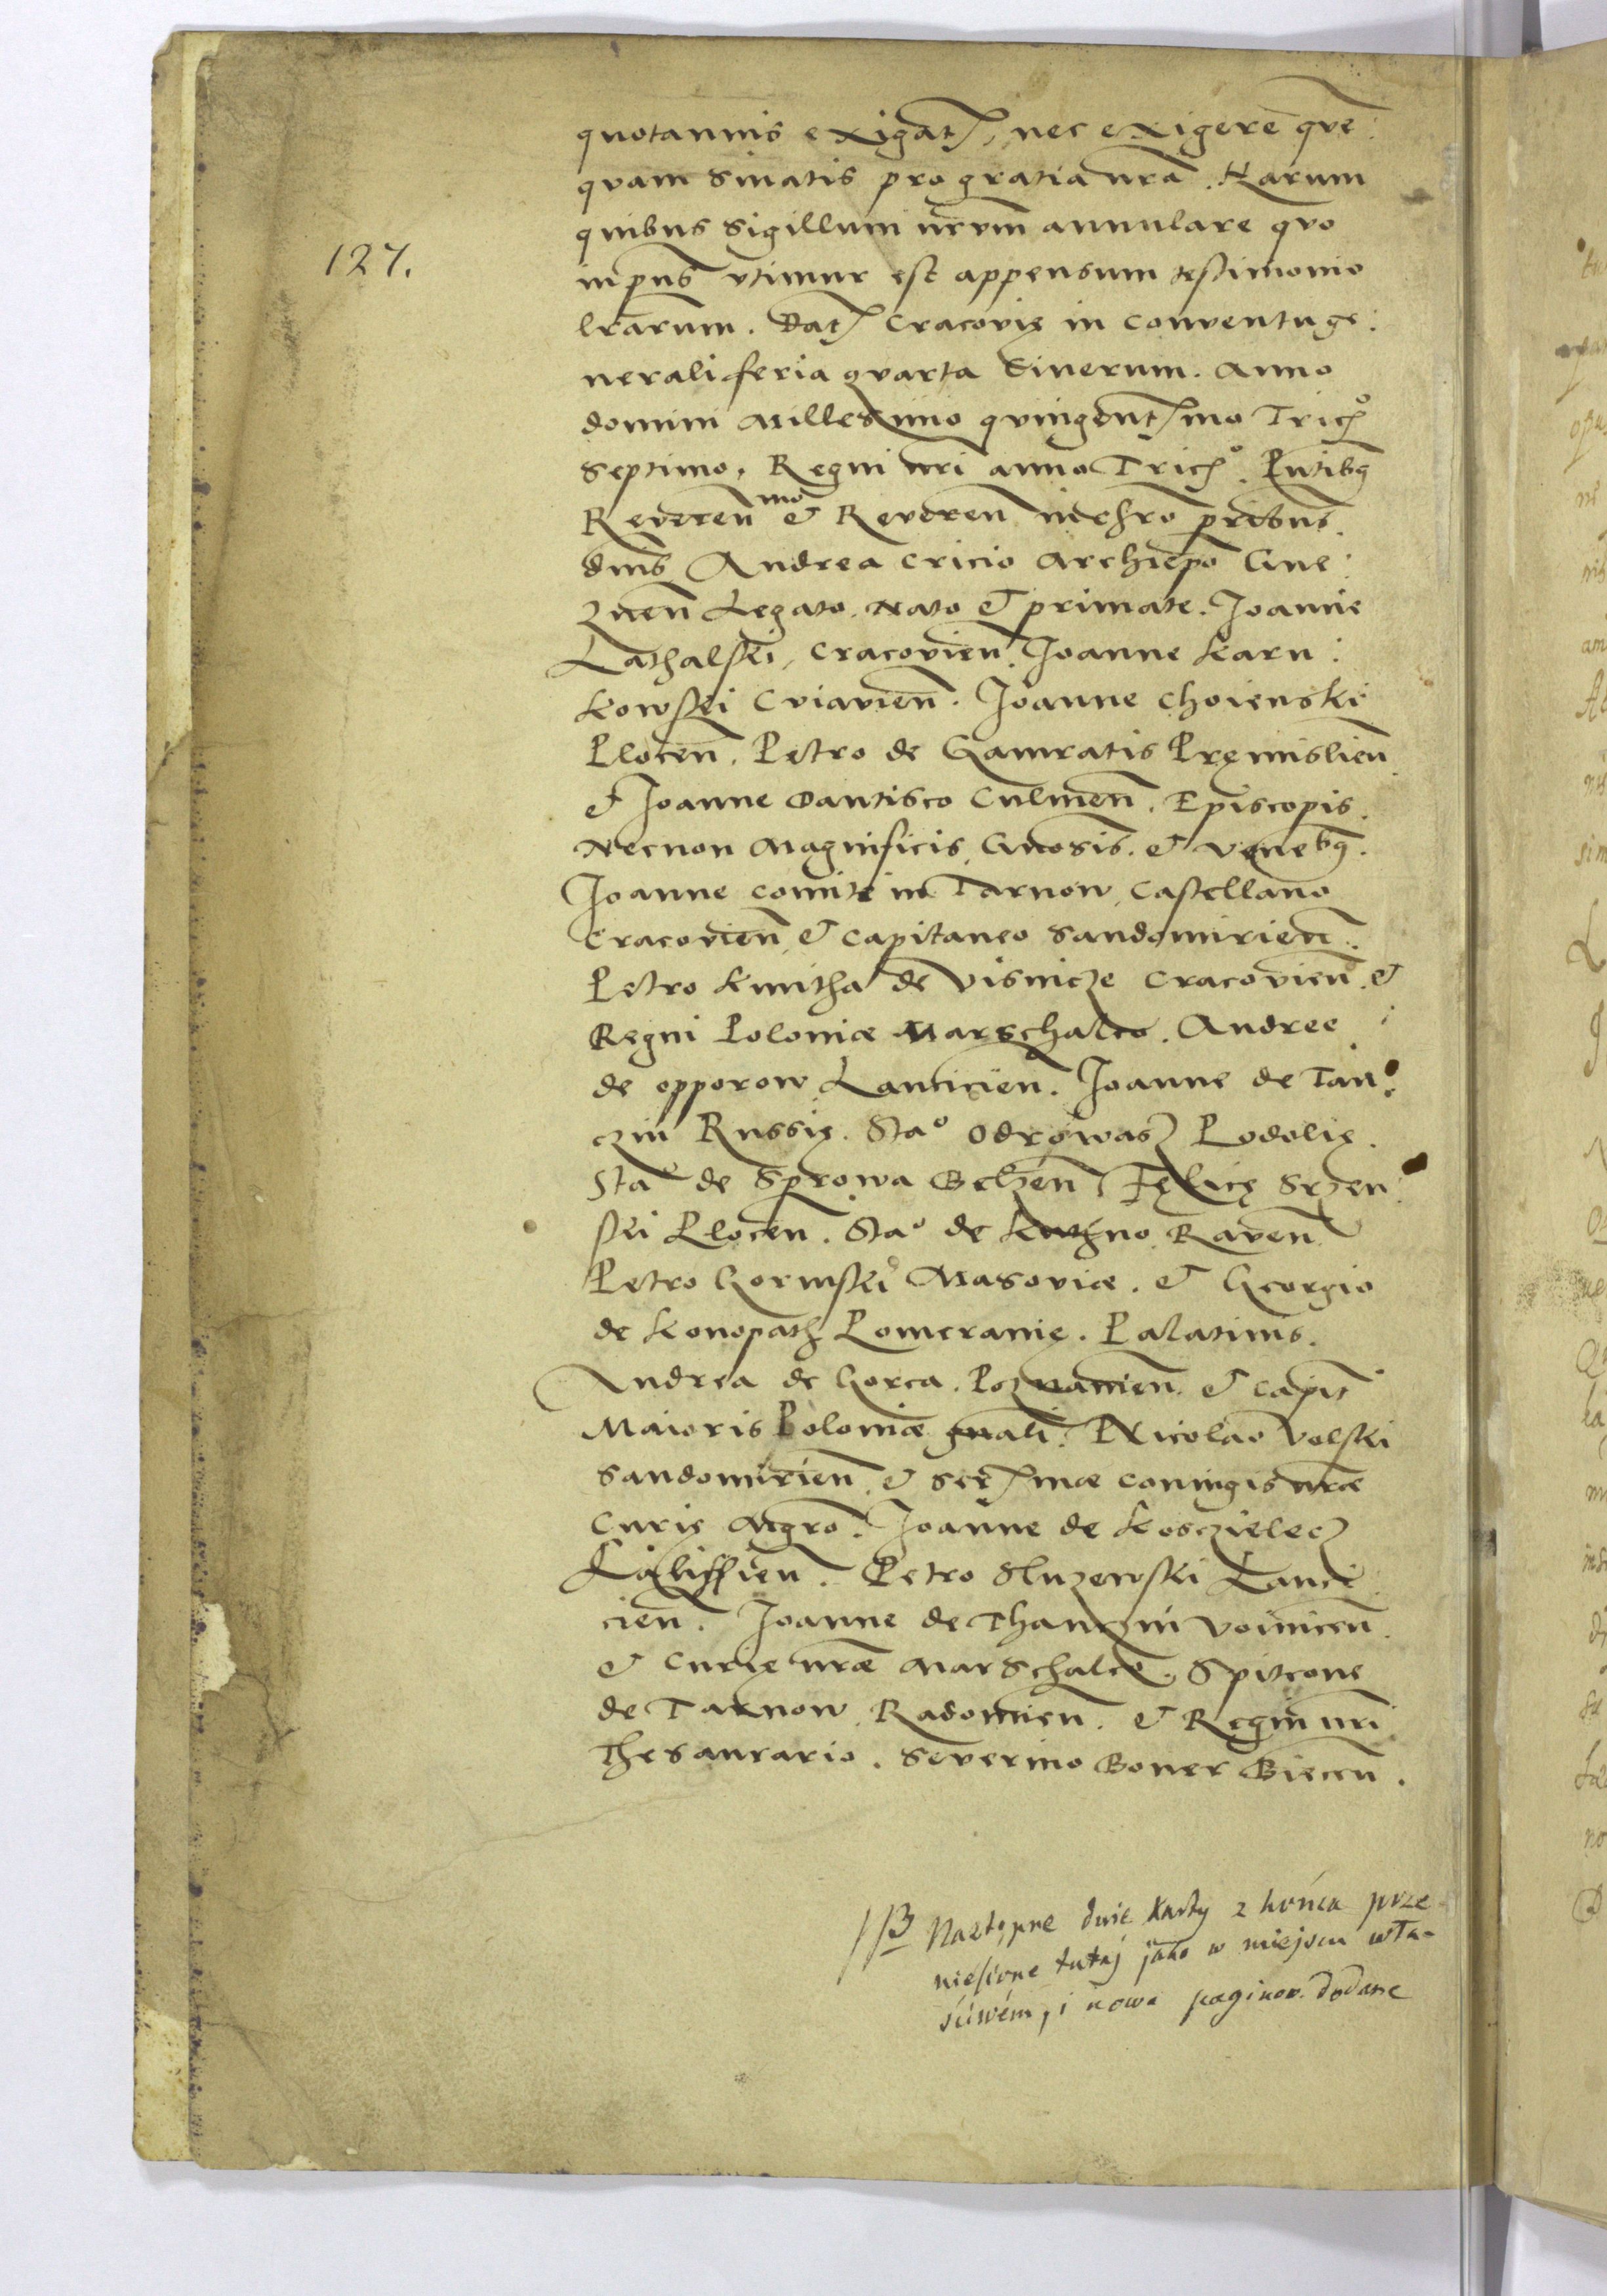 quotannis exigatꝭ, nec exigere que:
quam sinatis pro gratia nrā. Harum
quibus sigillum nrvm annulare quo
127.
in pn̄s vtimur est appensum testimonio
lrārum. Datꝭ Cracovię in conventu ge:
nerali feria quarta Cinerum. Anno
domini Millesimo quingentꝭmo Tricꝭo
septimo, Regni nri anno Tricꝭo. Pn̄tibꝫ
Reveren̄mo & Reveren̄ in chro pr̄ibus.
dnis Andrea Cricio Archiepo Gne:
znen̄ Legato Nato & primate. Joanne
Lathalski, Cracovien̄. Joanne Karn:
kowski Cviavien̄. Joanne Choienski
Plocen̄. Petro de Gamratis Pręmislien̄
& Joanne Dantisco Culmen̄. Episcopis.
Necnon Magnificis, Gnosis. & Venebꝫ.
Joanne comite in Tarnow, Castellano
Cracovien̄ & Capitaneo Sandomirien̄.
Petro Kmitha de Visnicze Cracovien̄. &
Regni Poloniæ Marschalco. Andree
de opporow Lancicien̄. Joanne de Tan:
czin Russię. Stao Odrowasz Podolię.
Stao de Sprowa Belzen̄ Fęlicę Srzen:
ski Plocen̄. Stao de Kuthno Raven̄
Petro Gorinski Masoviæ. & Georgio
de Konopath Pomeranię. Palatinis.
Andrea de Gorca. Poznanien̄. & Capit̄
Maioris Poloniæ gn̄ali. Nicolao Volski
Sandomirien̄. & Serꝭmæ coniugis nræ
Curię Mgro. Joanne de Kosczielecz
Calissien̄. Petro Sluzewski Lanci:
cien̄. Joanne de Thanczin Voinicen̄.
& Curię nræ Marschalco. Spitcone
de Tarnow Radomien̄. & Regni nri
Thesaurario. Severino Boner Biecen̄.
NB Następne dwie karty z końca prze-
niesione tutaj jako w miejscu wła-
ściwém, i nowa paginow. dodane